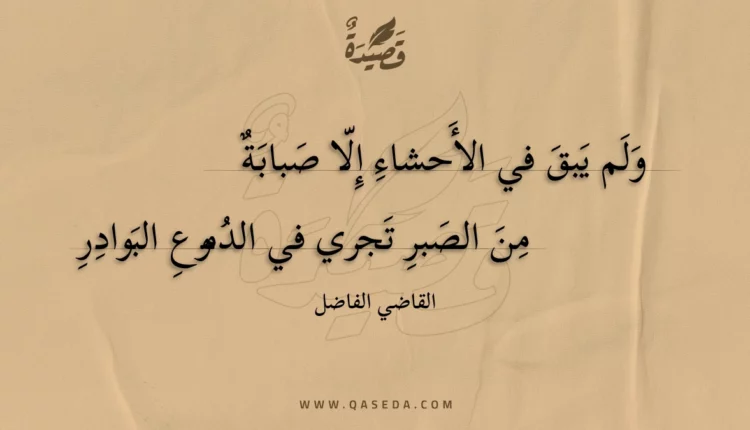 قَصِيدَةٌ
وَلَم يَبقَ في الأَحشاءِ إِلّا صَبابَةٌ
مِنَ الصَبرِ تَجري في الدُموعِ البَوادِرِ
القاضي الفاضل
WWW.QASEDA.COM